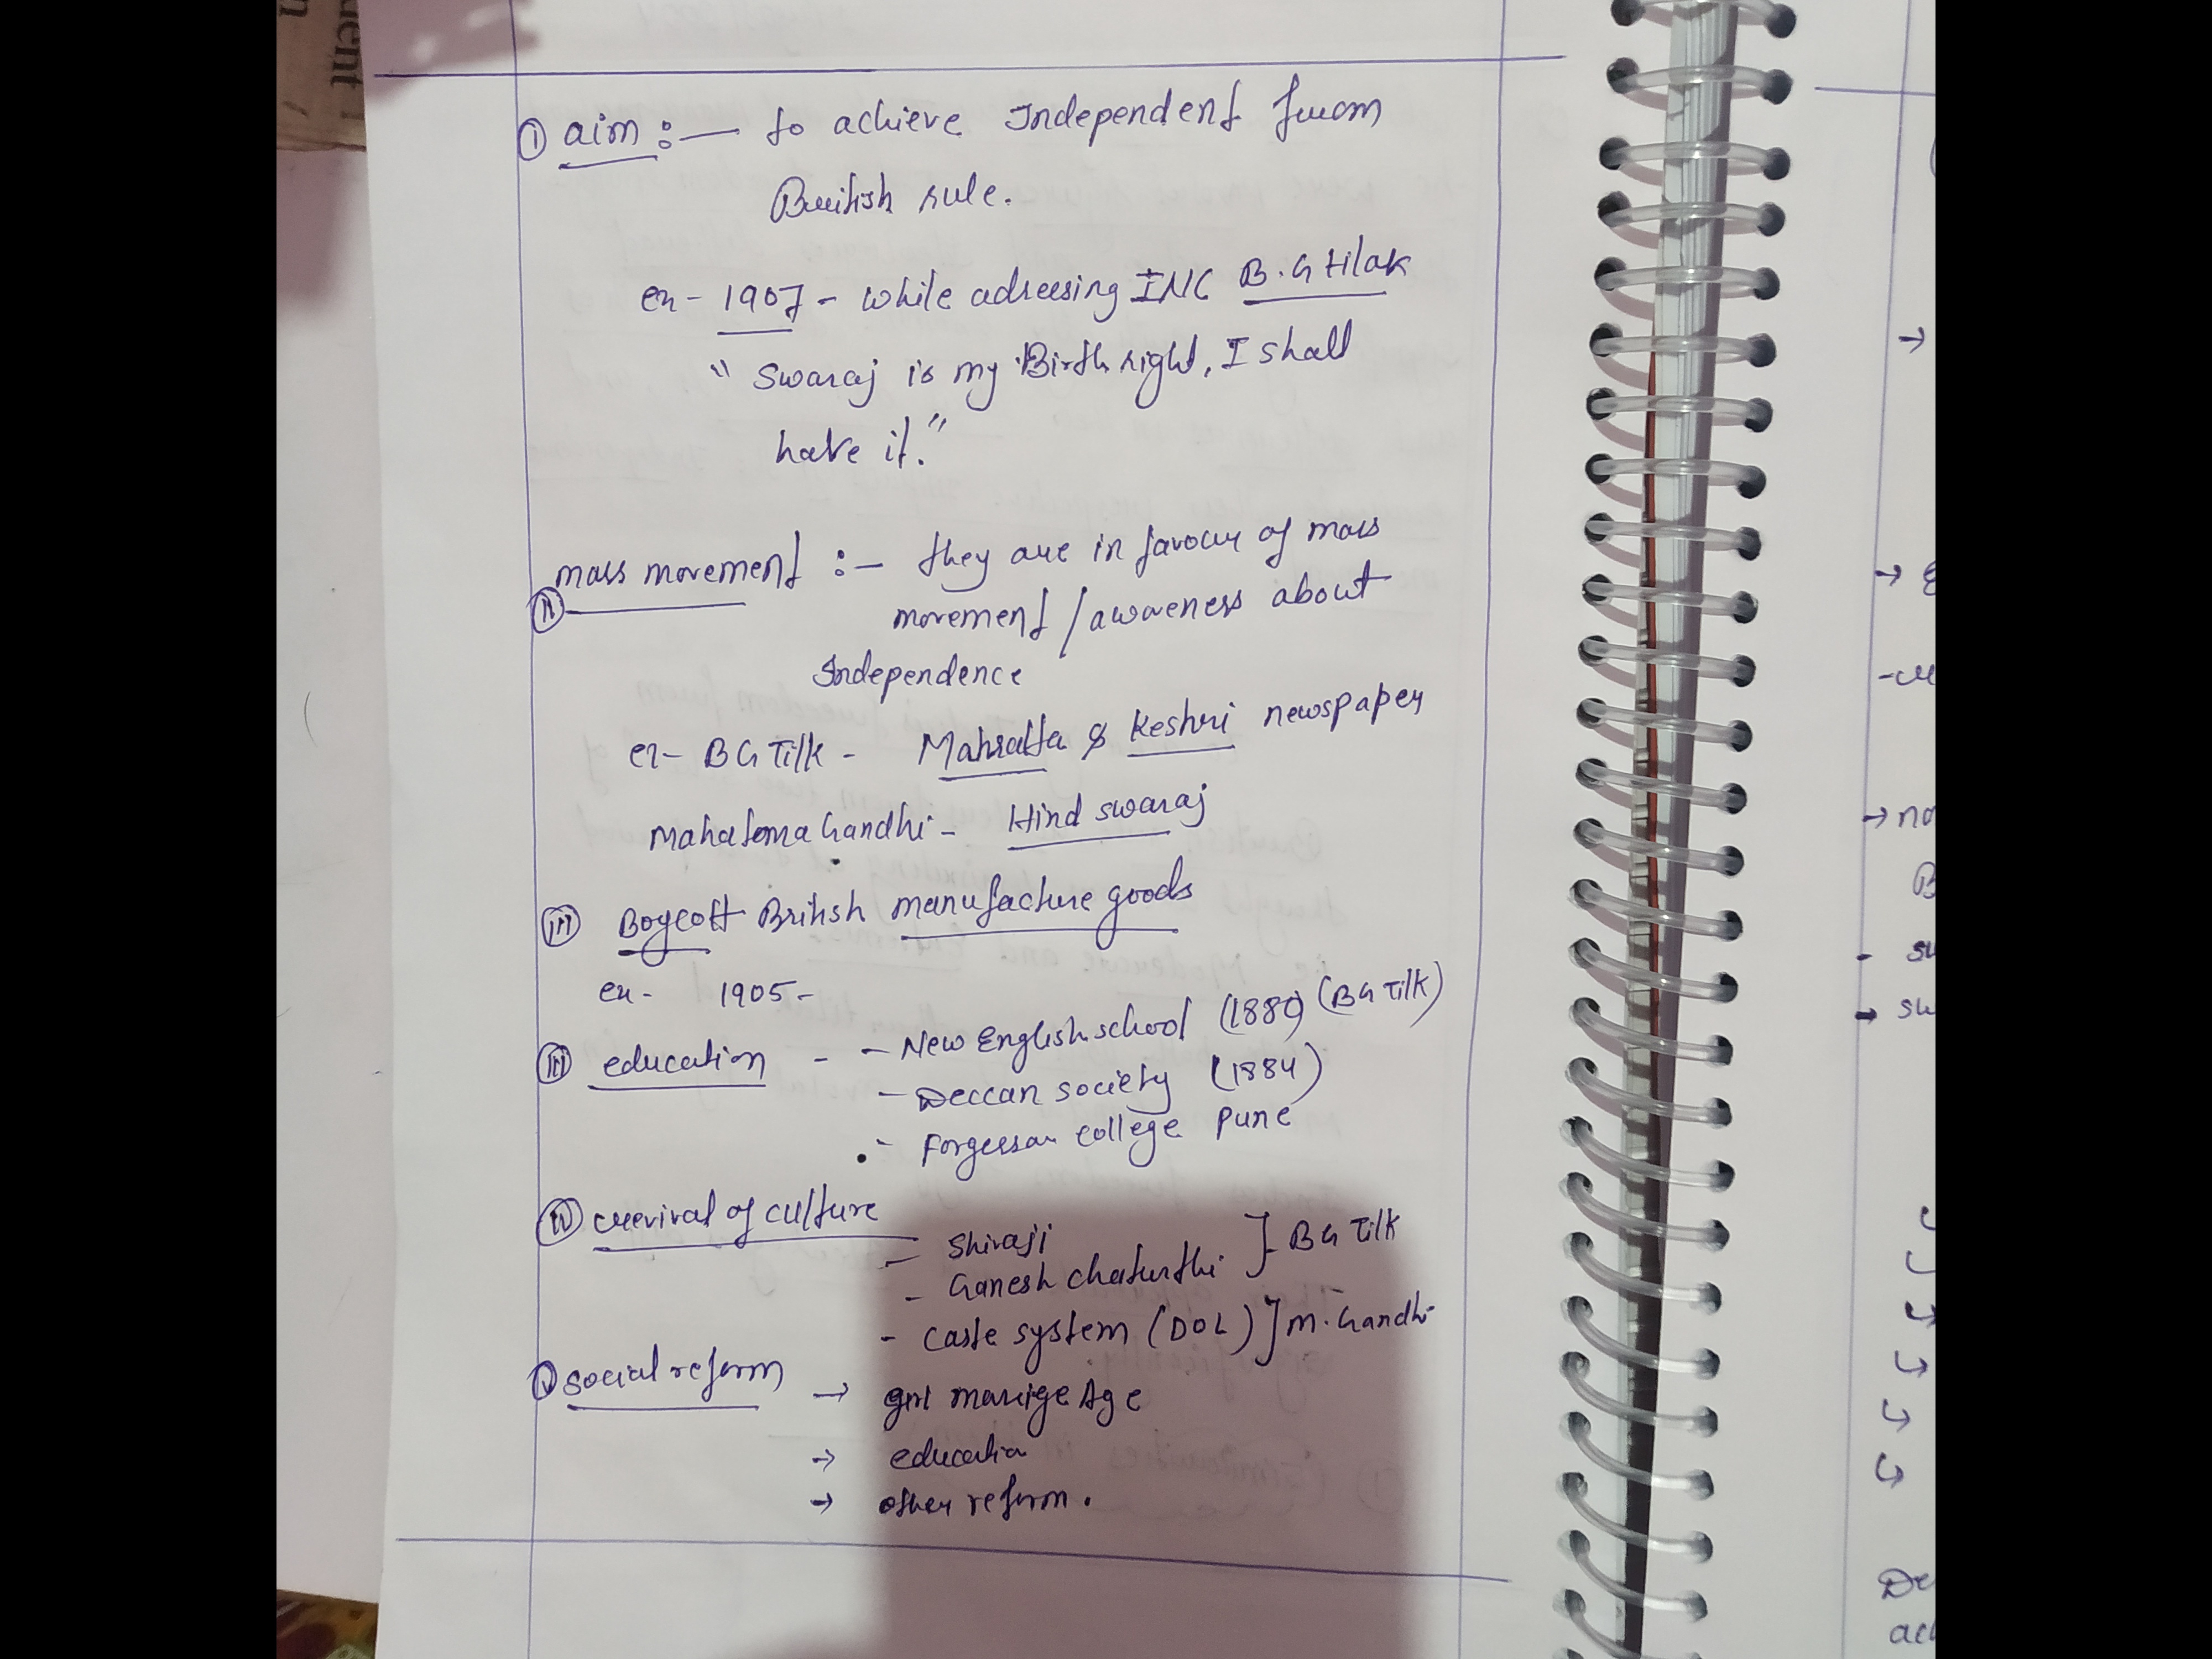 ent
① aim :— to achieve Independent from
British rule.
ex- 1907 - while adreesing INC B.G tilak
" Swaraj is my Birth right, I shall
have it."
mass movement :- they are in favour of mass
Ⓘⓘ
movement / awareness about
Independence
ex- BG Tilk - Mahratta & Keshri newspaper
Mahatma Gandhi - Hind swaraj
(iii) Boycott British manufacture goods
ex- 1905-
(iii) education - - New English school (1880) (BG Tilk)
- Deccan society (1884)
- Forgerssan college Pune
(iv) revival of culture
- Shivaji
- Ganesh chaturthi ] BG Tilk
- Caste system (DOL) ] M. Gandhi
(v) social reform
→ girl marrige Age
→ education
→ other reform.
→
→
→ no
B
- su
→ sw
De